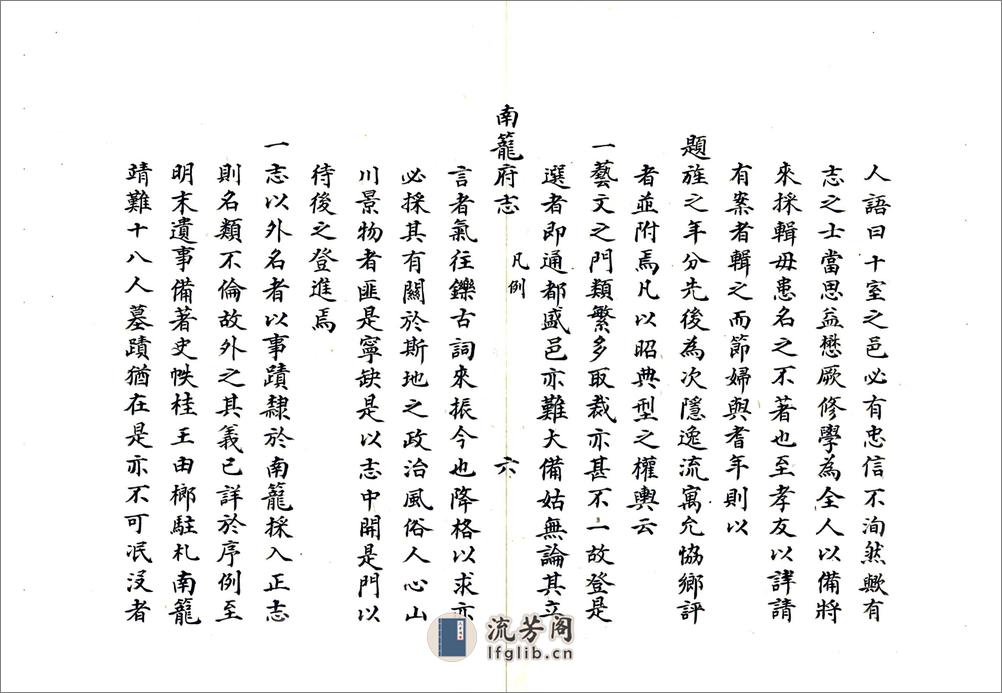 人語曰十室之邑必有忠信不洵然歟有
志之士當思益懋厥修學為全人以備將
來採輯毋患名之不著也至孝友以詳請
有案者輯之而節婦與耆年則以
題旌之年分先後為次隱逸流寓允協鄉評
者並附焉凡以昭典型之權輿云
一藝文之門類繁多取裁亦甚不一故登是
選者即通都盛邑亦難大備姑無論其立
南籠府志 凡例 六
言者氣往鑠古詞來振今也降格以求亦
必採其有關於斯地之政治風俗人心山
川景物者匪是寧缺是以志中開是門以
待後之登進焉
一志以外名者以事蹟隸於南籠採入正志
則名類不倫故外之其義已詳於序例至
明末遺事備著史帙桂王由榔駐札南籠
靖難十八人墓蹟猶在是亦不可泯沒者
流芳阁
lfglib.cn